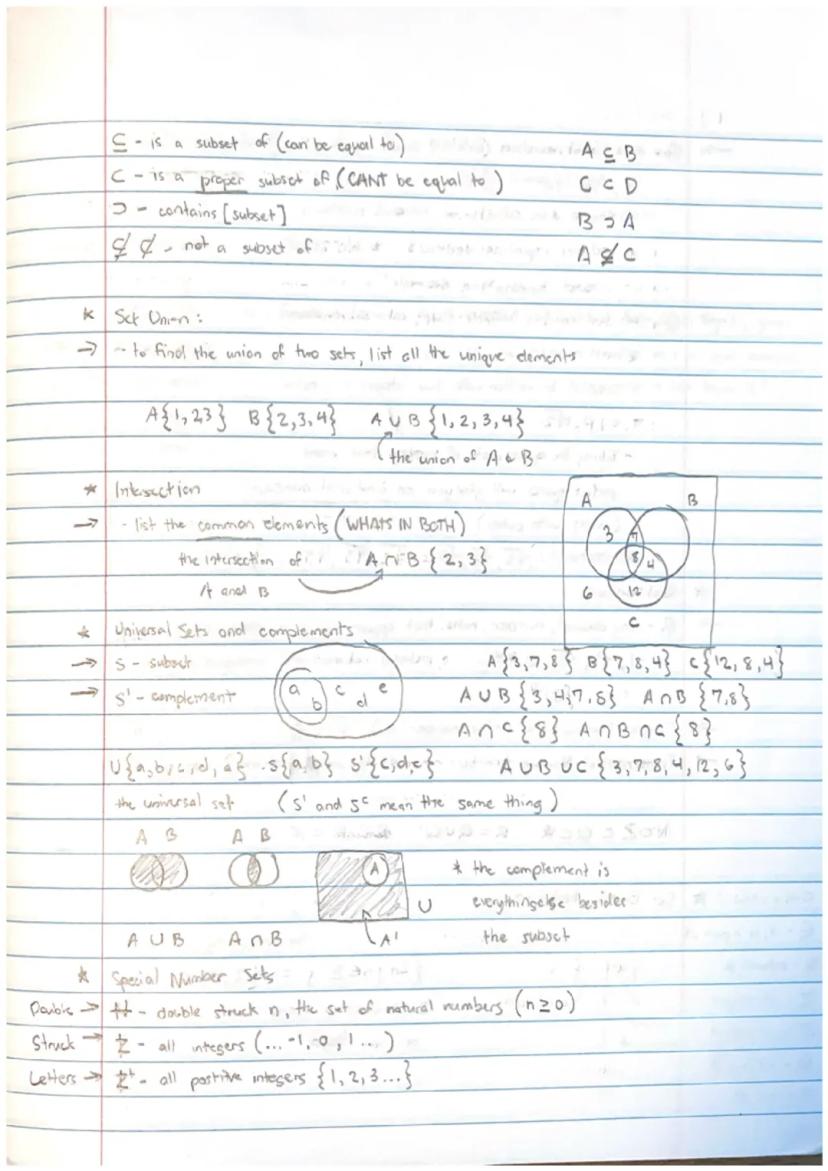 ⊆ - is a subset of (can be equal to) A ⊆ B
⊂ - is a proper subset of (CANT be equal to) C ⊂ D
⊃ - contains [subset] B ⊃ A
⊈ ⊄ - not a subset of A ⊈ C
* Set Union:
→ - to find the union of two sets, list all the unique elements
A{1,23} B{2,3,4} A ∪ B {1,2,3,4}
the union of A & B
* Intersection
→ - list the common elements (WHATS IN BOTH)
the intersection of A ∩ B = {2,3}
A and B
A B
3 7
8 4
6 12
C
* Universal Sets and complements
→ S - subset
→ S' - complement
a b c d e
A{3,7,8} B{7,8,4} C{12,8,4}
A ∪ B {3,4,7,8} A ∩ B {7,8}
A ∩ C {8} A ∩ B ∩ C {8}
U{a,b,c,d,e} S{a,b} S'{c,d,e} A ∪ B ∪ C {3,7,8,4,12,6}
the universal set (S' and Sᶜ mean the same thing)
A B A B
A
U
A'
A ∪ B A ∩ B
* the complement is
everything else besides
the subset
* Special Number Sets
Double → ℕ - double struck n, the set of natural numbers (n ≥ 0)
Struck → ℤ - all integers (... -1, 0, 1 ...)
Letters → ℤ⁺ - all positive integers {1, 2, 3...}